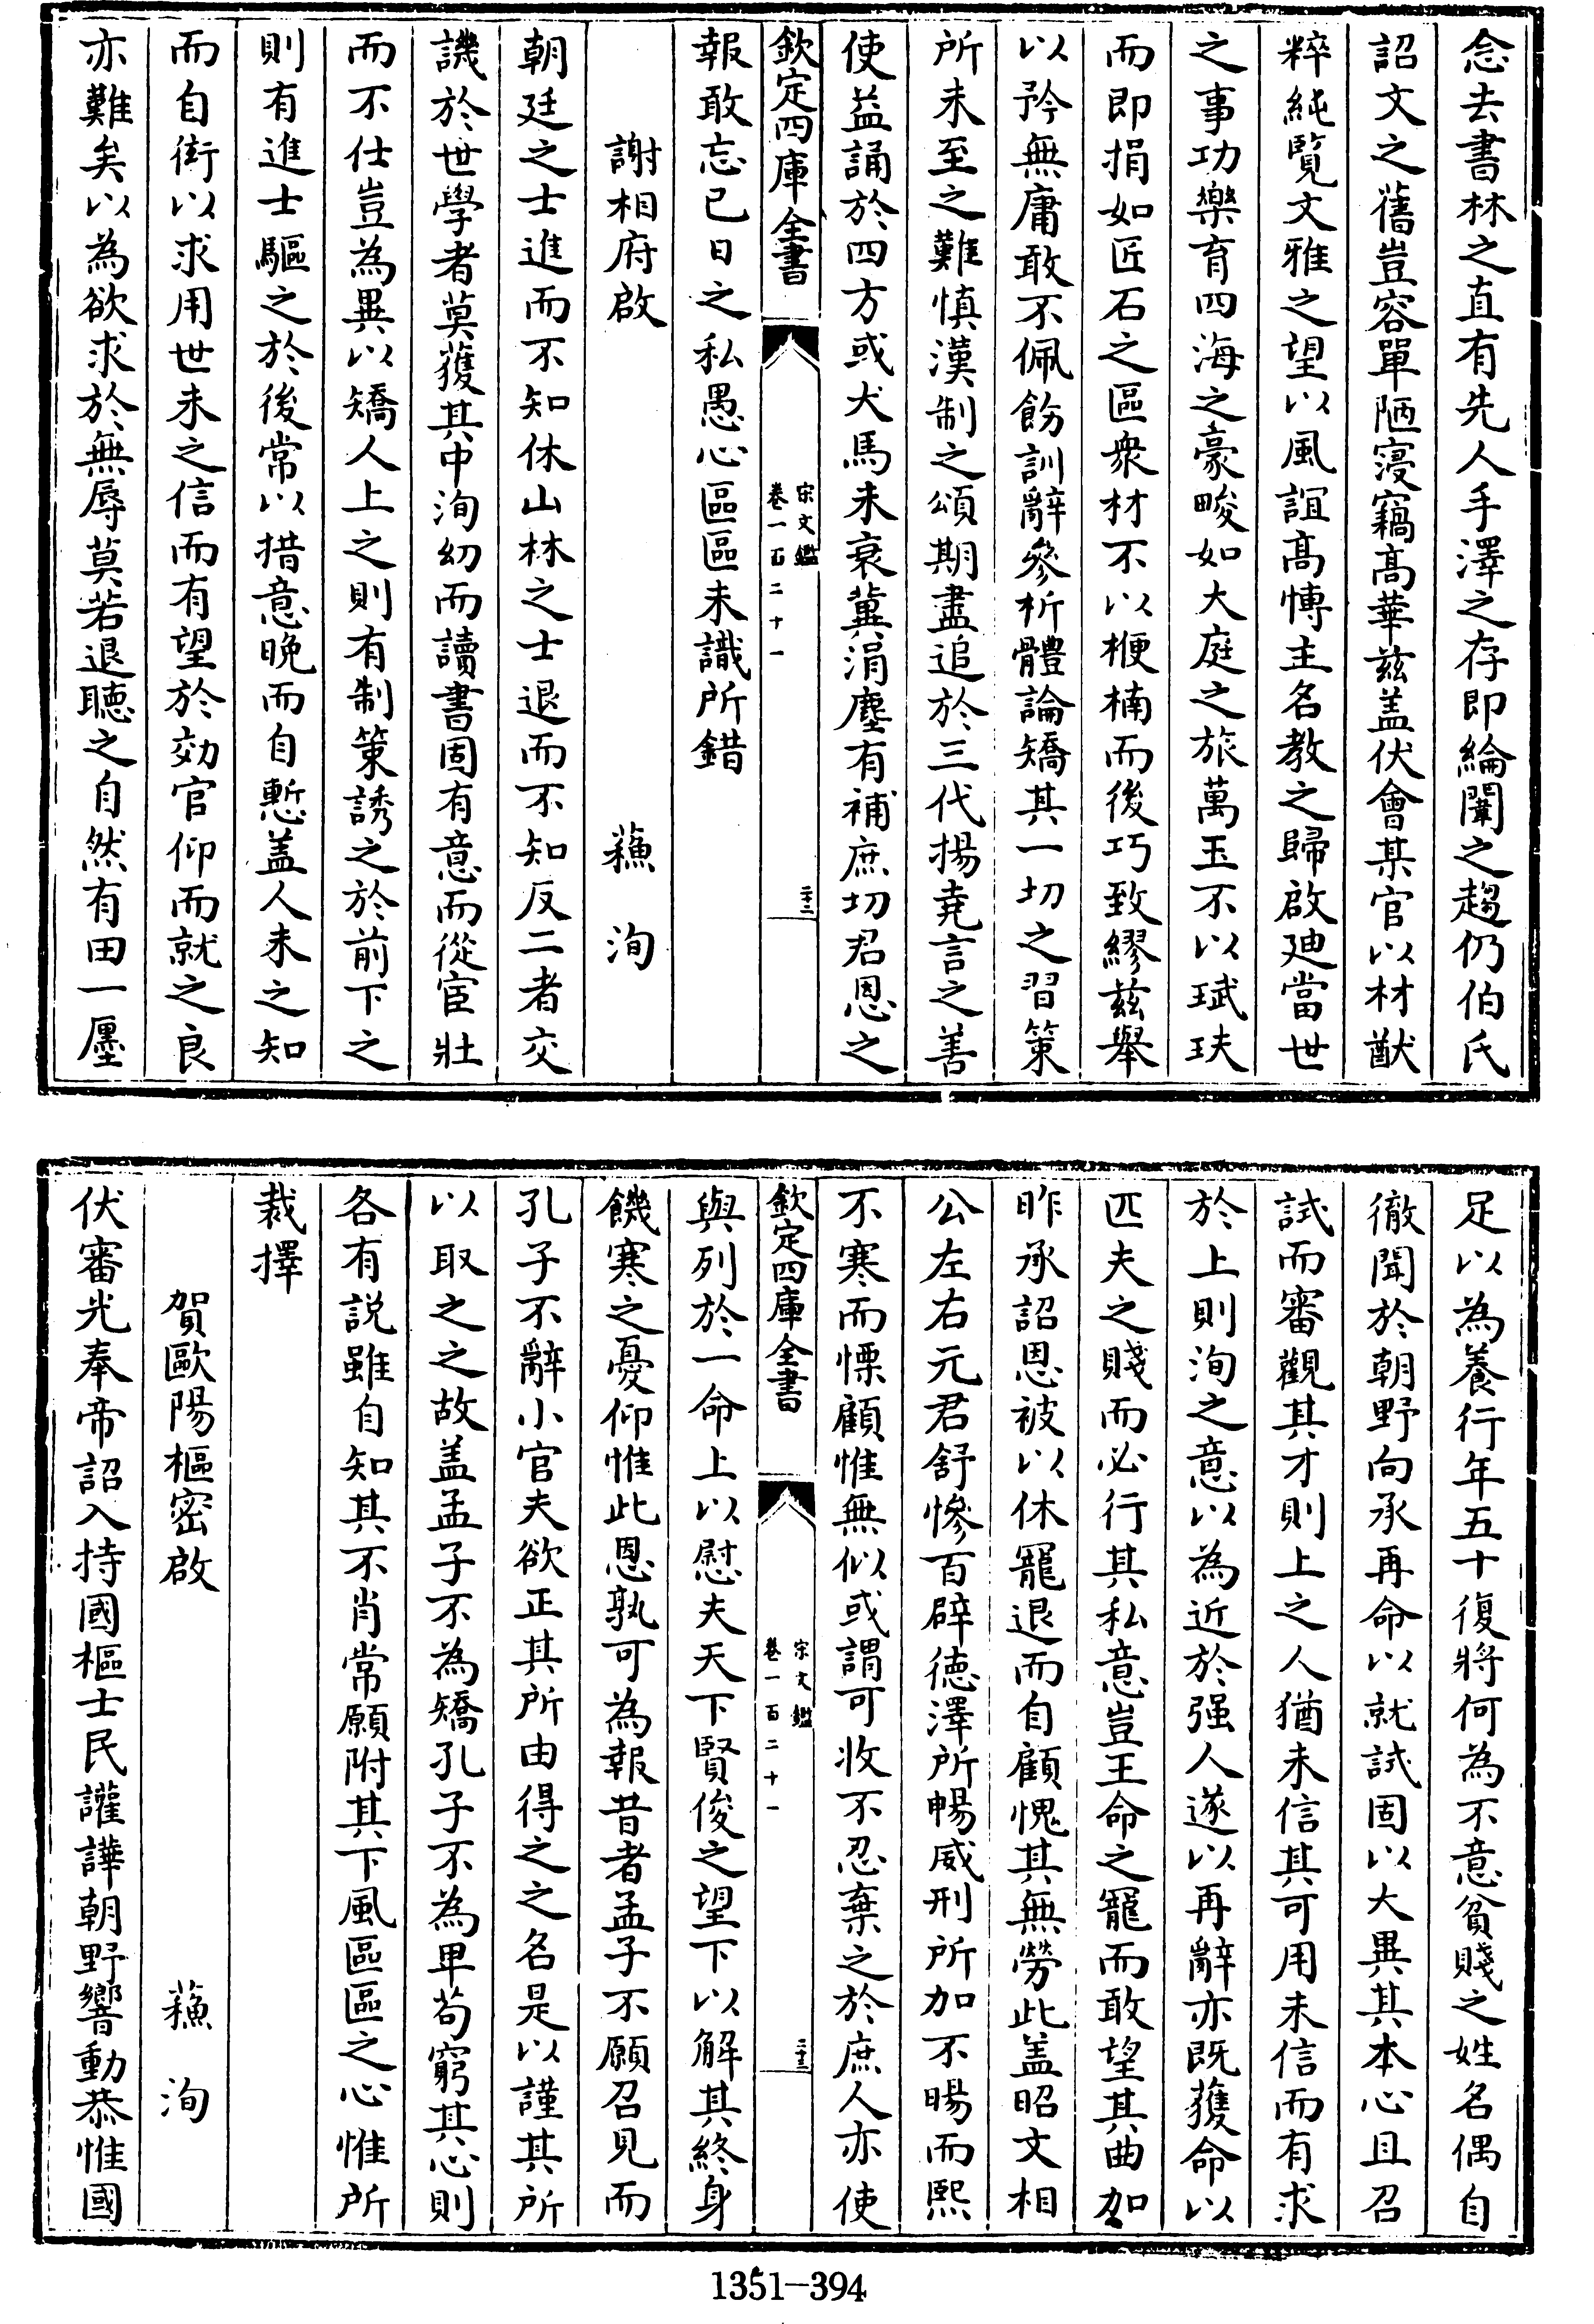 念去書林之直有先人手澤之存即綸闈之趨仍伯氏
詔文之舊豈容單陋寖竊髙華兹盖伏會某官以材猷
粹純覽文雅之望以風誼髙慱主名教之歸啟廸當世
之事功樂育四海之豪畯如大庭之旅萬玉不以珷玞
而即捐如匠石之區衆材不以楩楠而後巧致繆兹舉
以矜無庸敢不佩飭訓辭參析體論矯其一切之習策
所未至之難慎漢制之頌期盡追於三代揚堯言之善
使益誦於四方或犬馬未衰冀涓塵有補庶切君恩之
欽定四庫全書
宋文鑑
卷一百二十一
二十二
報敢忘已日之私愚心區區未識所錯
謝相府啟
蘓洵
朝廷之士進而不知休山林之士退而不知反二者交
譏於世學者莫獲其中洵幼而讀書固有意而從宦壯
而不仕豈為異以矯人上之則有制策誘之於前下之
則有進士驅之於後常以措意晚而自慙盖人未之知
而自衒以求用世未之信而有望於効官仰而就之良
亦難矣以為欲求於無辱莫若退聽之自然有田一㕓
足以為養行年五十復將何為不意貧賤之姓名偶自
徹聞於朝野向承再命以就試固以大異其本心且召
試而審觀其才則上之人猶未信其可用未信而有求
於上則洵之意以為近於强人遂以再辭亦既獲命以
匹夫之賤而必行其私意豈王命之寵而敢望其曲加
昨承詔恩被以休寵退而自顧愧其無勞此盖昭文相
公左右元君舒慘百辟德澤所暢威刑所加不暘而熙
不寒而慄顧惟無似或謂可收不忍棄之於庶人亦使
欽定四庫全書
宋文鑑
卷一百二十一
二十三
與列於一命上以慰夫天下賢俊之望下以解其終身
饑寒之憂仰惟此恩孰可為報昔者孟子不願召見而
孔子不辭小官夫欲正其所由得之之名是以謹其所
以取之之故盖孟子不為矯孔子不為卑茍窮其心則
各有説雖自知其不肖常願附其下風區區之心惟所
裁擇
賀歐陽樞密啟
蘓洵
伏審光奉帝詔入持國樞士民讙譁朝野響動恭惟國
1351-394